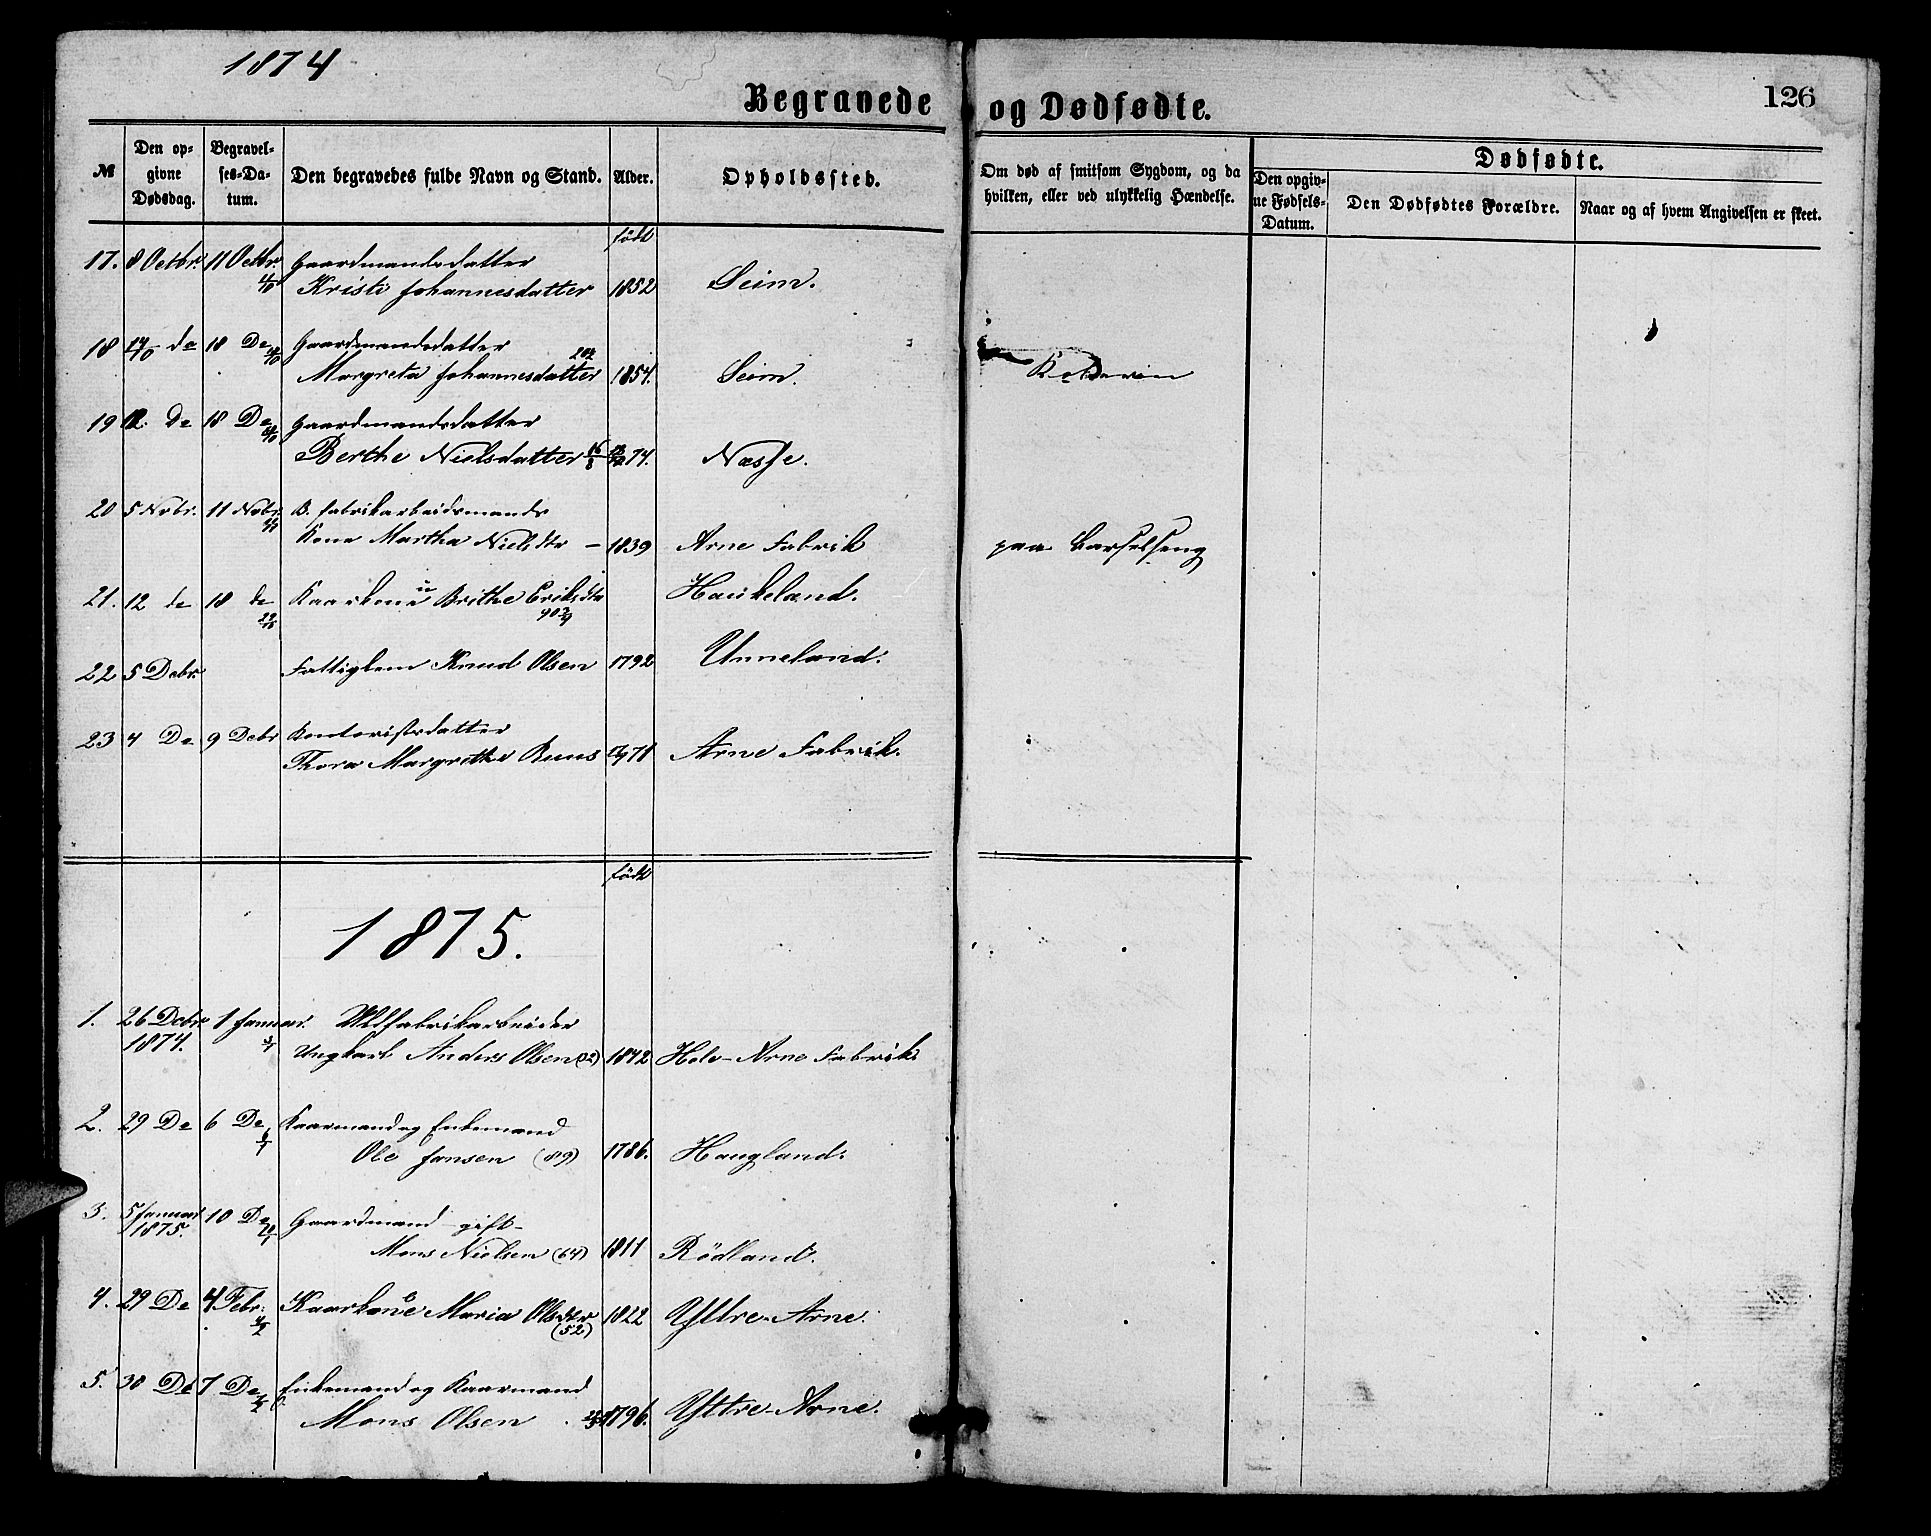 1874
Begravede og Dødfødte.
126
№ Den opgivne Dødsdag. Begravelses-Datum. Den begravedes fulde Navn og Stand. Alder. Opholdssted. Om død af smitsom Sygdom, og da hvilken, eller ved ulykkelig Hændelse. Dødfødte. Den opgivne Fødsels-Datum. Den Dødfødtes Forældre. Naar og af hvem Angivelsen er skeet.
født
17. 8 Octbr. 11 Octbr. Gaardmandsdatter
Kristi Johannesdatter 1852 Seim.
18 do 18 Do Gaardmandsdatter
Margreta Johannesdatter 1854. Seim.
19 12. Do 18 Do Gaardmandsdatter
Berthe Nielsdatter 74. Næsse.
20 5 Nvbr. 11 Nvbr. B. Fabrikarbeidsmands
Kone Martha Nielsdtr – 1839 Arne Fabrik paa Barselseng
21. 12 do 18 do Kaarkone Brithe Eriksdtr Haukeland.
22 5 Debr. Fattiglem Knud Olsen 1792 Unneland.
23 4 Do 9 Debr Kontoristsdatter
Thora Margrethe Buus 71 Arne Fabrik.
født
1875.
1. 26 Debr. 1 Januar. Uldfabrikarbeider
1874. Ungkarl Anders Olsen (32) 1842 Hole-Arne Fabrik
2. 29 Do 6 Do Kaarmand og Enkemand
Ole Jansen (89) 1786. Haugland.
3. 5 Januar 10 Do Gaardmand gift-
1875. Mons Nielsen (64) 1811 Rödland.
4. 29 Do 4 Febr. Kaarkone Maria Olsdtr 1822 Yttre-Arne.
(52)
5. 30 Do 7 Do Enkemand og Kaarmand
Mons Olsen 1796. Yttre-Arne.